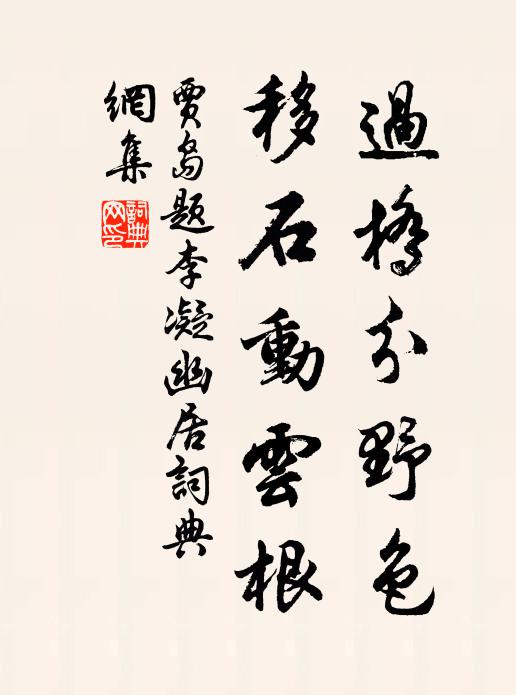 過橋分野色
移石動雲根
賈島題李凝幽居詞典
網集
詞典
网印